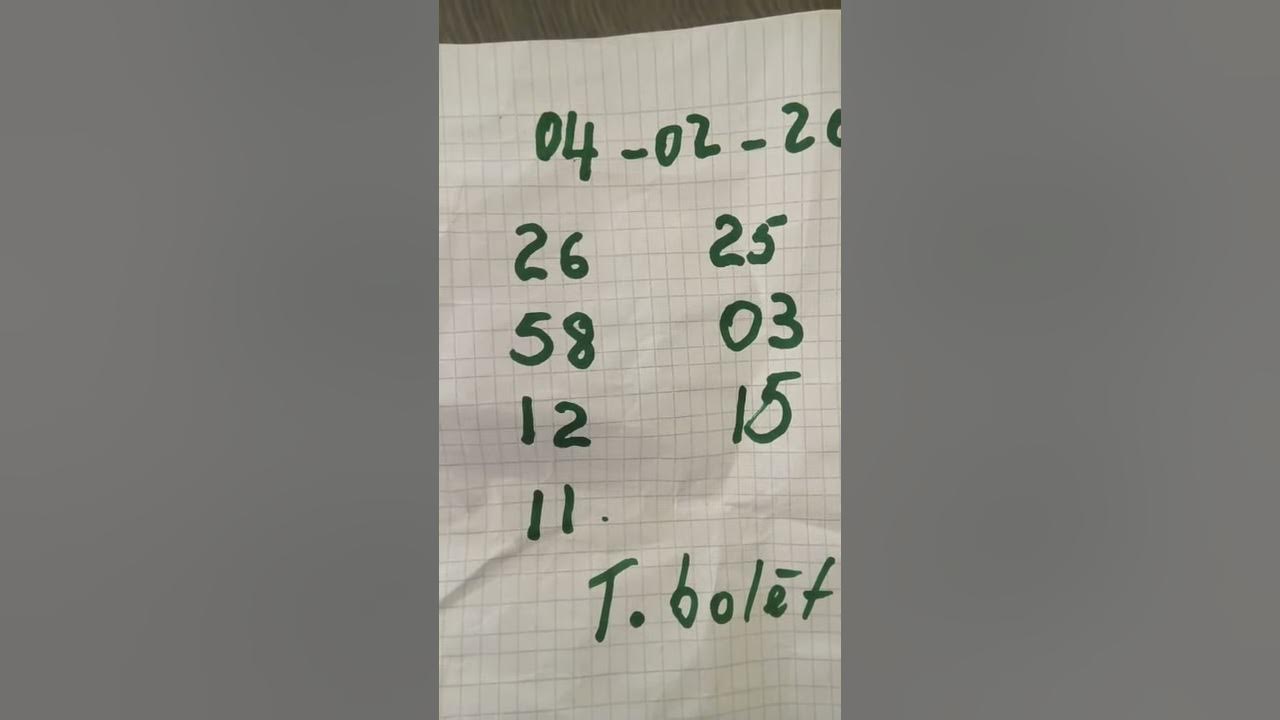 04-02-20
26 25
58 03
12 15
11.
T. bolēt